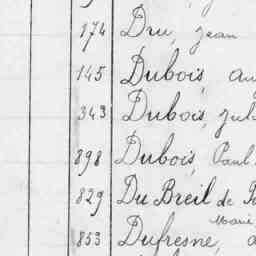 174 Dru, Jean
145 Dubois,
343 Dubois,
898 Dubois, Paul
829 Du Breil de
Marie
853 Dufresne,